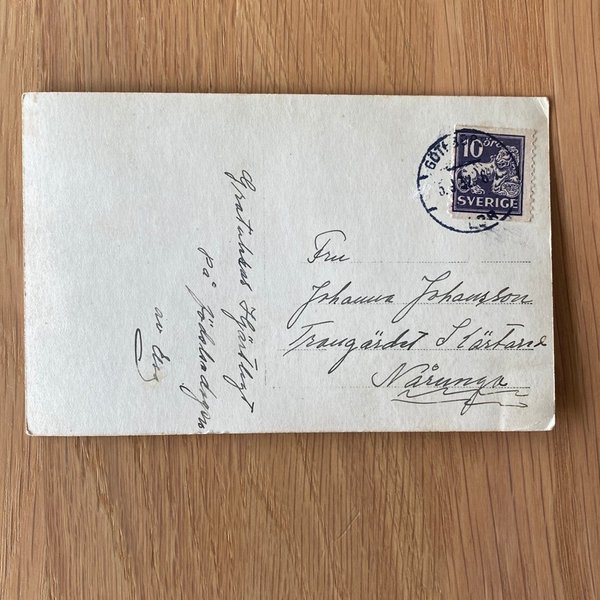 Gratuleras Hjärtligt
på födelsedagen
av
GÖTEBORG
LBR
10 öre
SVERIGE
Fru
Johanna Johansson
Trangärdet Slärtared
Nårunga